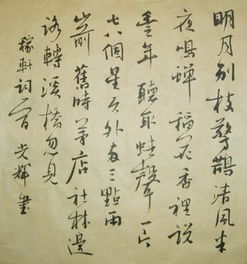 明月别枝驚鵲清風半
夜鳴蟬稻花香裡説
豊年聽取蛙聲一片
七八個星天外两三點雨
山前舊時茅店社林邊
路轉溪橋忽見
稼軒詞一首光輝書